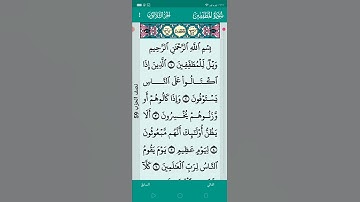 سُورَةُ المُطَفِّفِينَ الجُزْءُ الثَّلَاثُونَ
بِسْمِ ٱللَّهِ ٱلرَّحْمَٰنِ ٱلرَّحِيمِ
وَيْلٌ لِّلْمُطَفِّفِينَ ١ ٱلَّذِينَ إِذَا
ٱكْتَالُوا۟ عَلَى ٱلنَّاسِ
يَسْتَوْفُونَ ٢ وَإِذَا كَالُوهُمْ أَو
وَّزَنُوهُمْ يُخْسِرُونَ ٣ أَلَا
يَظُنُّ أُو۟لَٰٓئِكَ أَنَّهُم مَّبْعُوثُونَ
٤ لِيَوْمٍ عَظِيمٍ ٥ يَوْمَ يَقُومُ
ٱلنَّاسُ لِرَبِّ ٱلْعَٰلَمِينَ ٦ كَلَّآ
نصف الحزب 59
التالي السابق